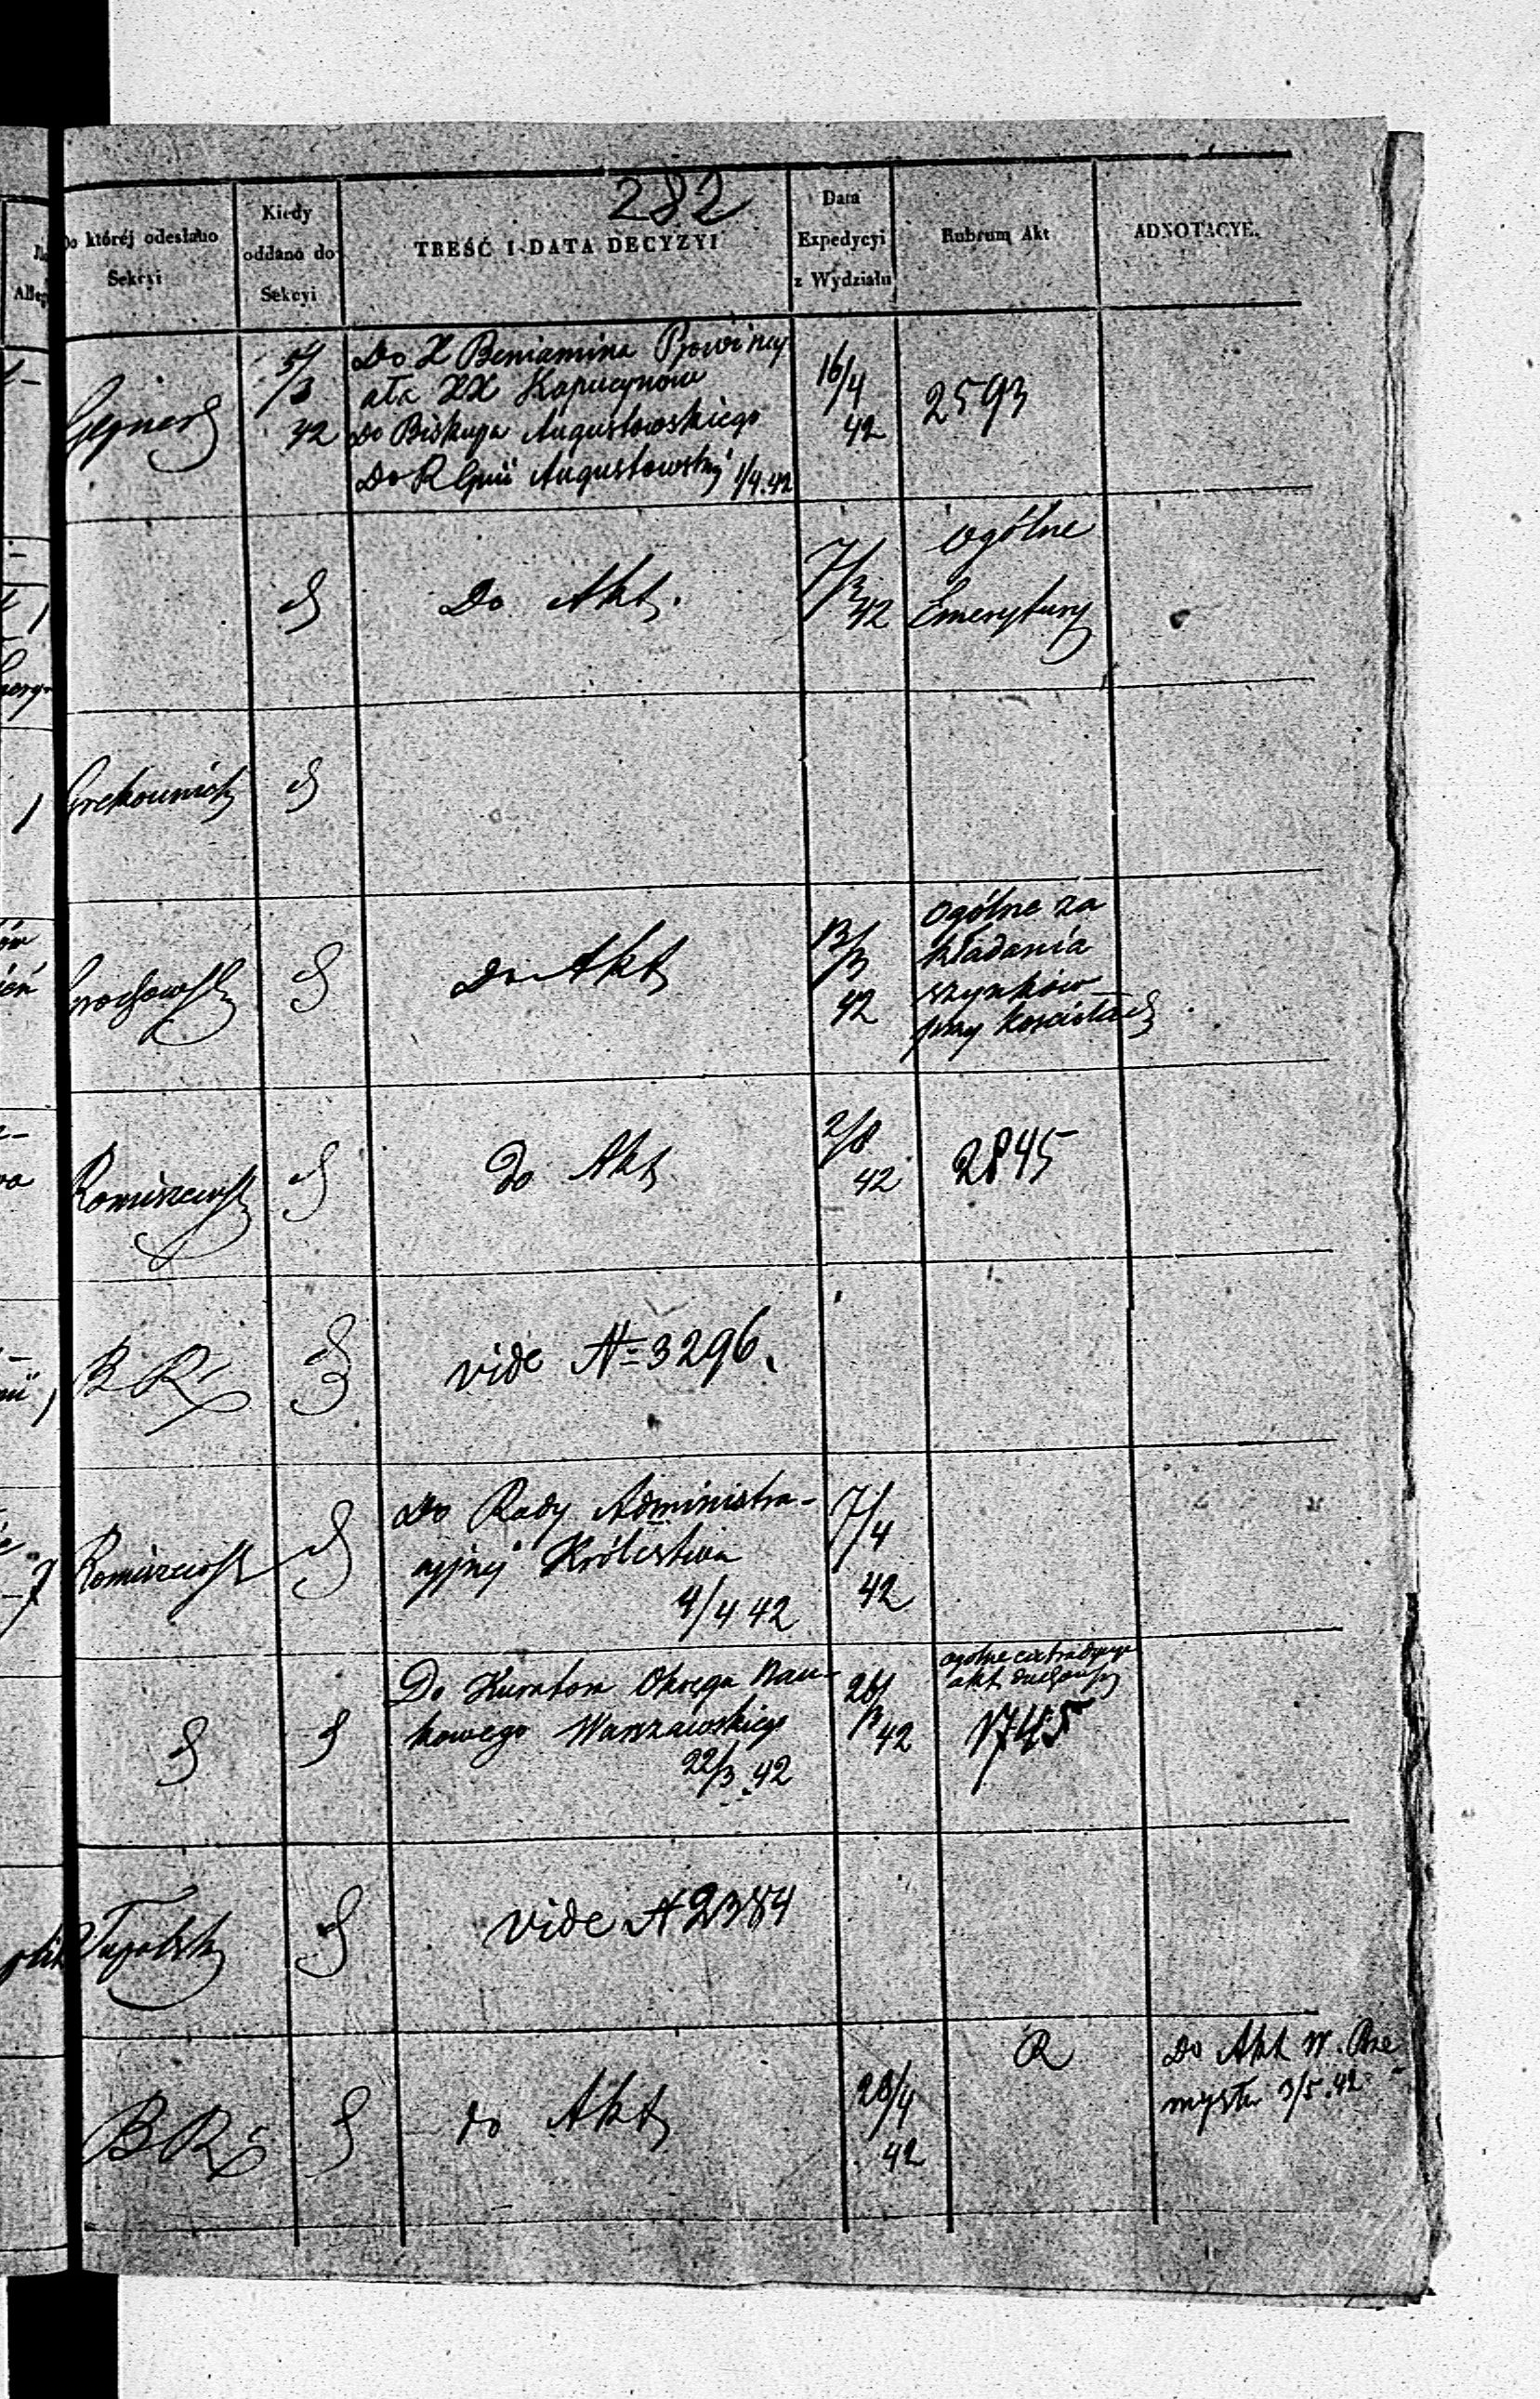 282
Do której odesłano
Sekcyi
Kiedy
oddano do
Sekcyi
TREŚĆ I DATA DECYZYI
Data
Expedycyi
z Wydziału
Rubrum Akt
ADNOTACYE.
5/3
42
Do X Beniamina Prowincy
ała XX Kapucynów
Do Biskupa Augustowskiego
Do R Gnii Augustowskiej 1/4.42
16/4
42
2593
Do Akt.
7/3
42
Ogólne
Emerytury
Do Akt
13/3
42
Ogólne za
kładania
szynków
przy kościołach
Romiszewsk
do Akt
2/8
42
2845
B R
vide N=3296.
Romiszewsk
Do Rady Administra-
cyjnej Królestwa
4/4 42
7/4
42
Do Kuratora Okręgu Nau-
kowego Warszawskiego
22/3 42
26/3
42
ogólne
akt
1745
vide N 2384
B R
do Akt
28/4
42
R
Do Akt W. Prze
mysłu 3/5.42